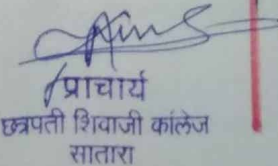 प्राचार्य
छत्रपती शिवाजी कॉलेज
सातारा